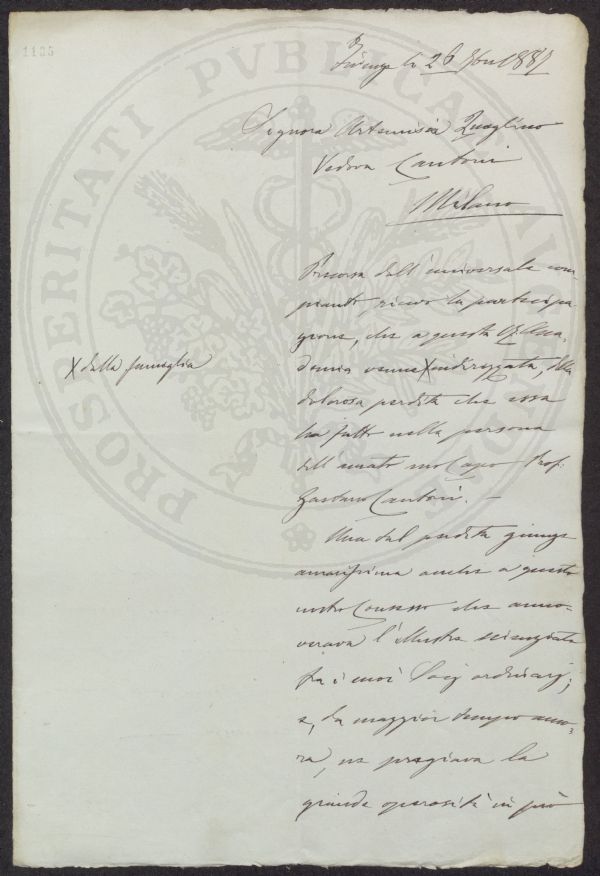 1135
PROSPERITATI PUBLICAE AUGENDAE
Firenze li 26 9bre 1887
Signora Artemisia Quaglino
Vedova Cantoni
Milano
dall'universale com
pianto, ricevo la partecipa
zione, che a questa Rl. Acca
demia venne X indirizzata, della
X dalla famiglia
dolorosa perdita che essa
ha fatto nella persona
dell'amato suo Capo Prof.
Gaetano Cantoni. –
Una tal perdita giunge
amarissima anche a questo
nostro Consesso che anno-
verava l'illustre scienziato
fra i suoi Socj ordinarj;
e, da maggior tempo anco-
ra, ne pregiava la
grande operosità in prò